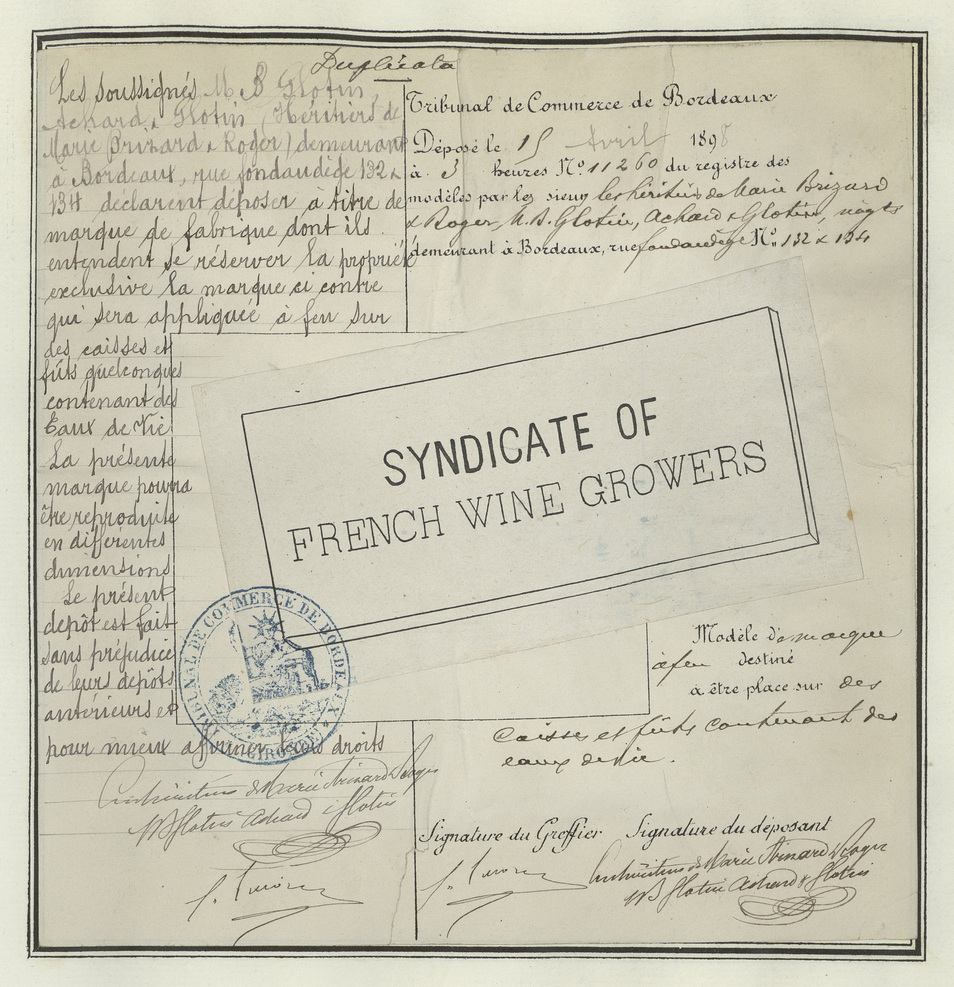 Duplicata
Les soussignés M B Glotin,
Achard & Glotin (Héritiers de
Marie Brizard & Roger) demeurant
à Bordeaux, rue fondaudège 132 &
134 déclarent déposer à titre de
marque de fabrique dont ils
entendent se réserver la propriété
exclusive la marque ci contre
qui sera appliquée à feu sur
des caisses et
fûts quelconques
contenant des
Eaux de Vie
La présente
marque pourra
être reproduite
en différentes
dimensions
Le présent
dépôt est fait
sans préjudice
de leurs dépôts
antérieurs et
pour mieux affirmer leurs droits
Tribunal de Commerce de Bordeaux
Déposé le 15 Avril 1898
à 3 heures No. 11260 du registre des
modèles par les sieurs les héritiers de Marie Brizard
& Roger, M.B. Glotin, Achard & Glotin, négts
demeurant à Bordeaux, rue fondaudège No. 132 & 134
SYNDICATE OF
FRENCH WINE GROWERS
TRIBUNAL DE COMMERCE DE BORDEAUX
(GIRONDE)
Modèle de marque
à feu destiné
à être placé sur des
caisses et fûts contenant des
eaux de vie.
Les héritiers de Marie Brizard & Roger
MB Glotin Achard & Glotin
Signature du Greffier Signature du déposant
Les héritiers de Marie Brizard & Roger
MB Glotin Achard & Glotin